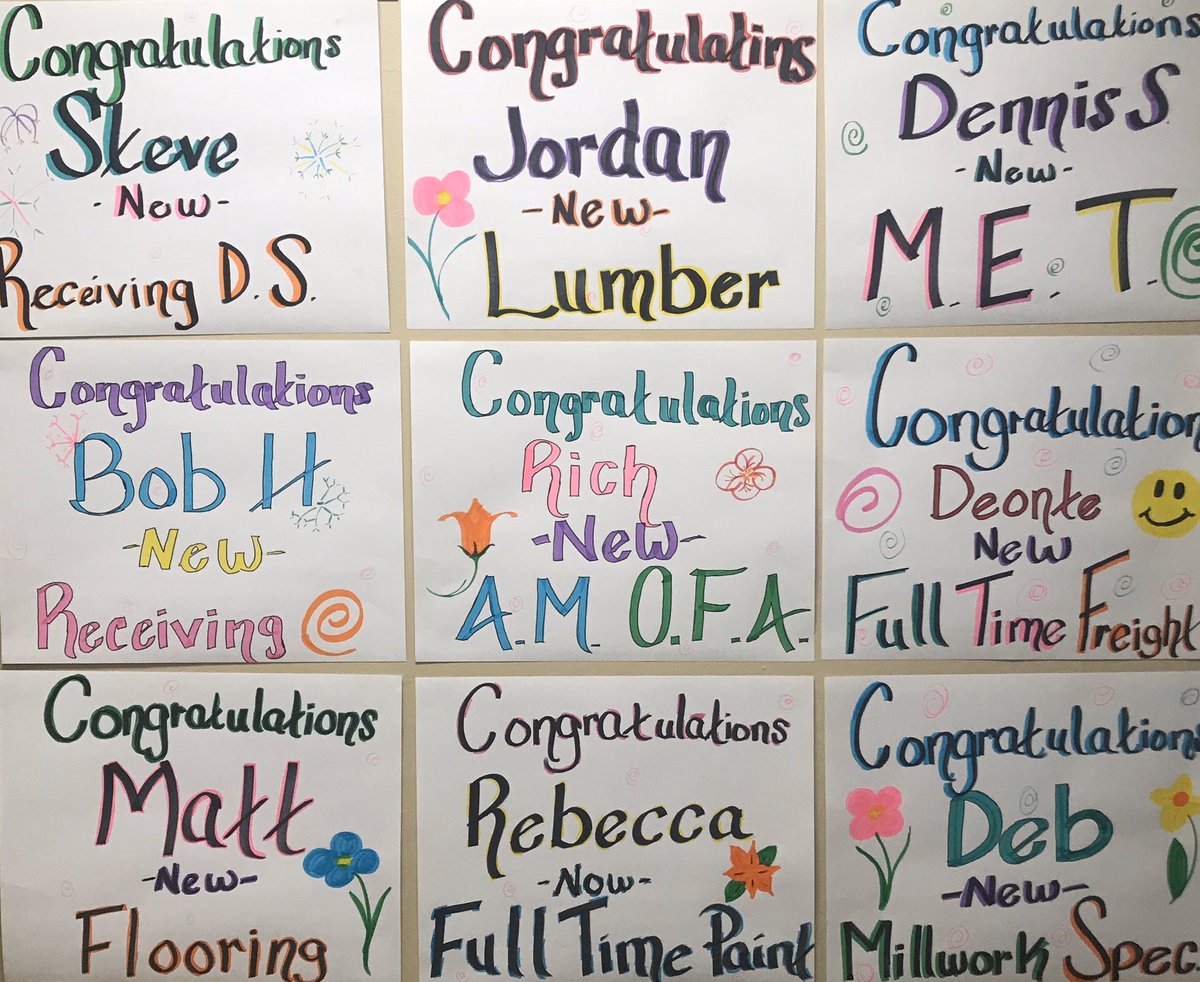 Congratulations
Steve
-New-
Receiving D.S.
Congratulatins
Jordan
-New-
Lumber
Congratulations
Dennis S
-New-
M.E.T.
Congratulations
Bob H
-New-
Receiving
Congratulations
Rich
-New-
A.M. O.F.A.
Congratulation
Deonte
New
Full Time Freight
Congratulations
Matt
-New-
Flooring
Congratulations
Rebecca
-Now-
Full Time Paint
Congratulations
Deb
-New-
Millwork Spec.